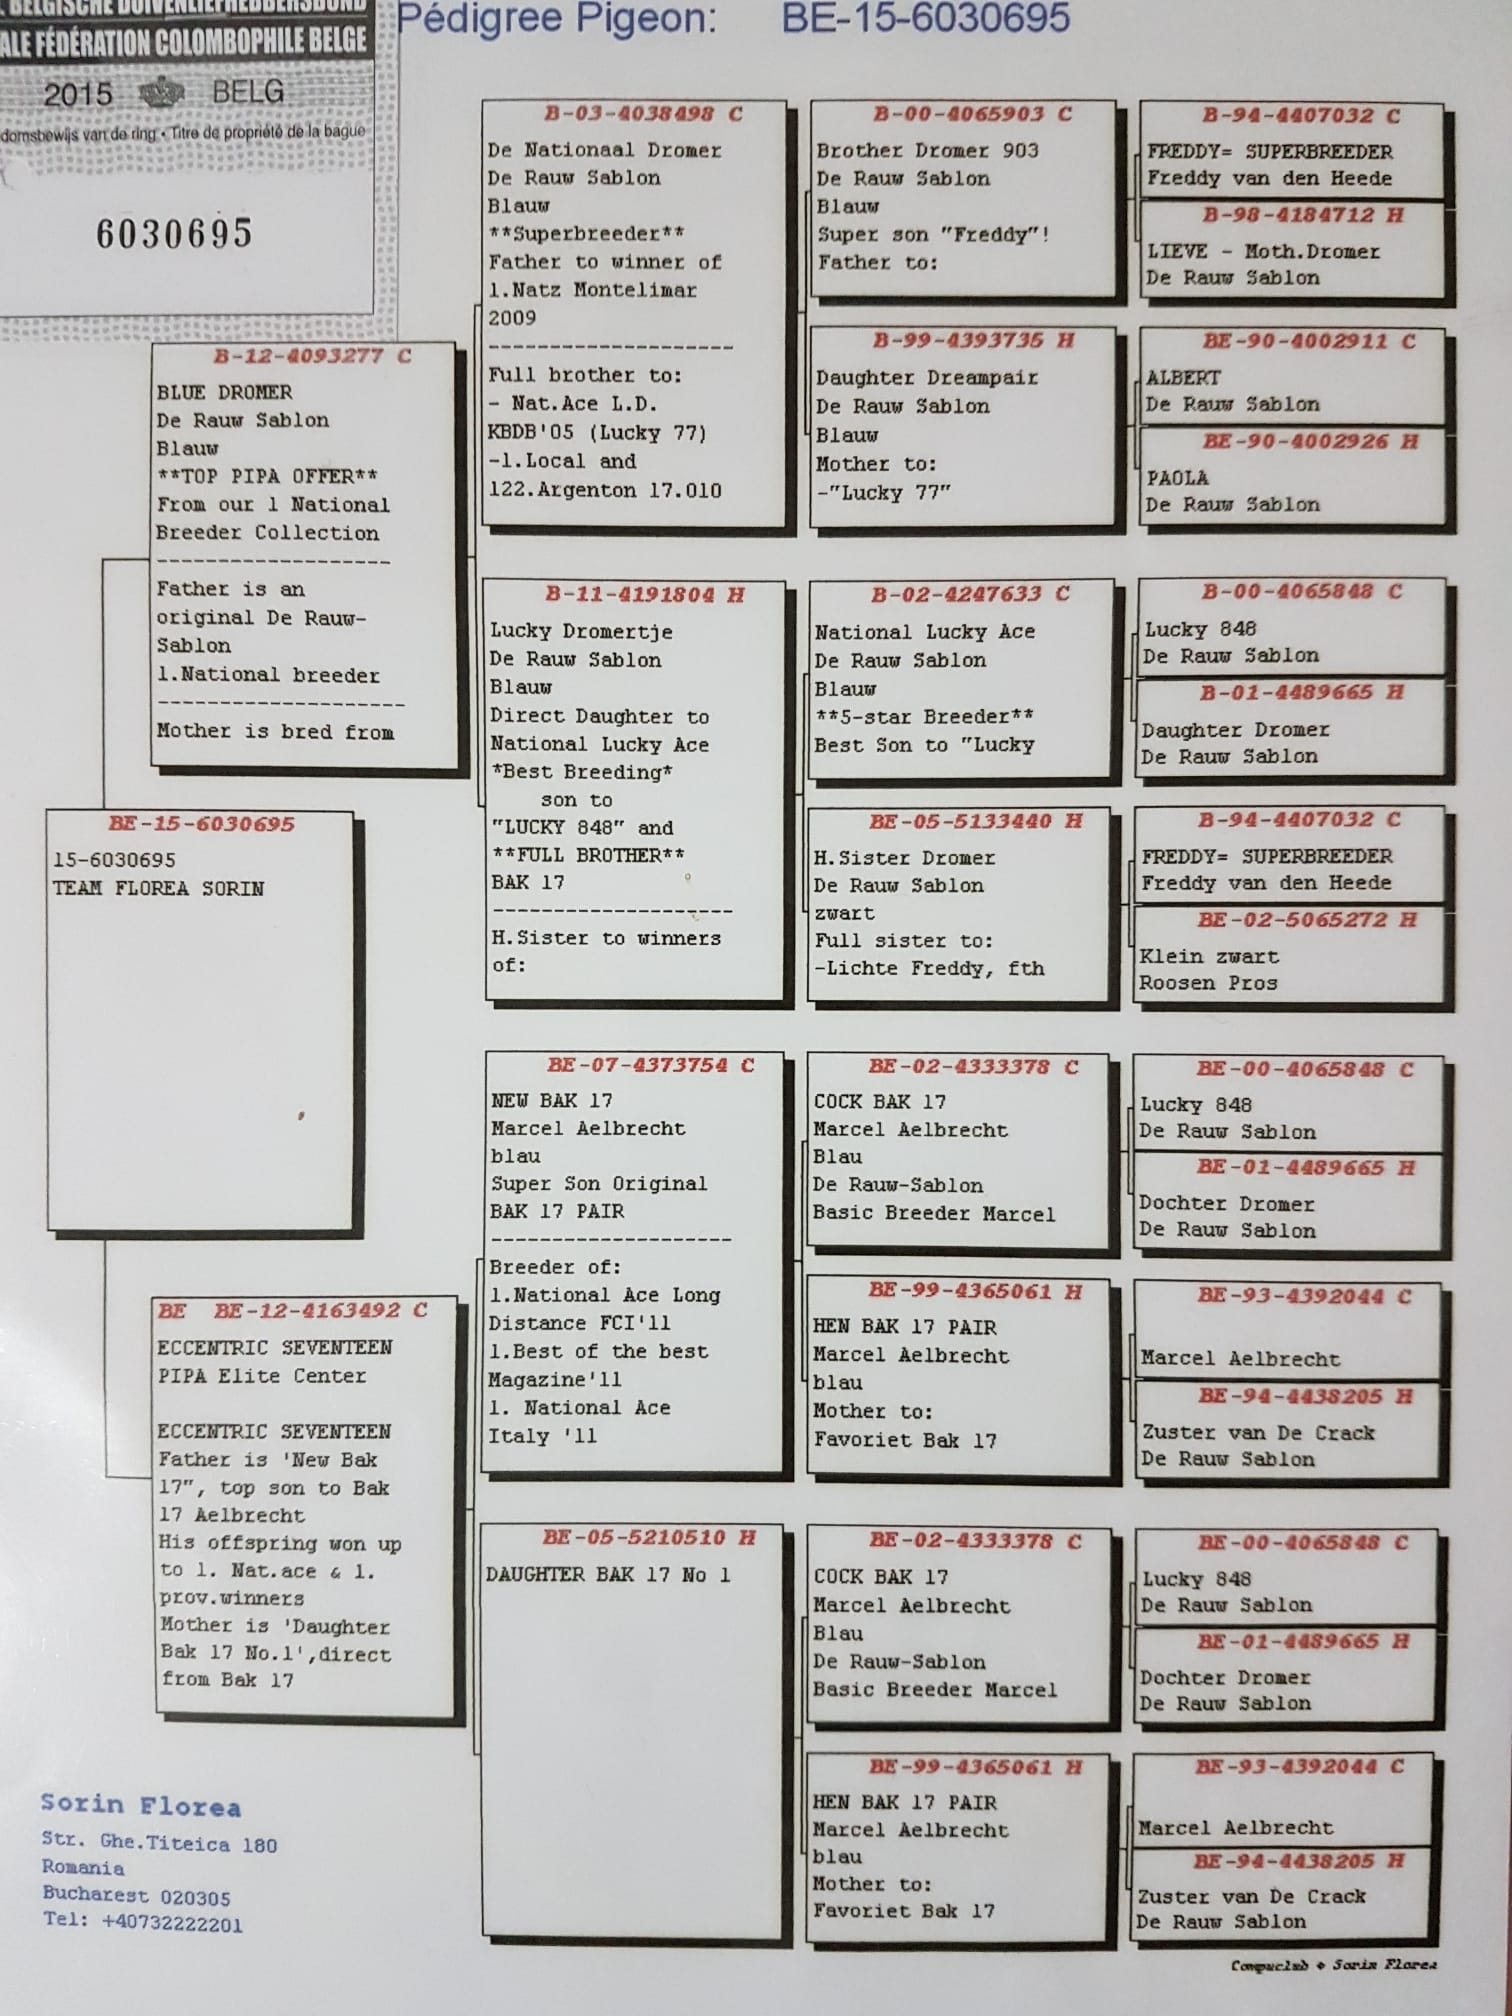 BELGISCHE DUIVENLIEFHEBBERSBOND
ALE FÉDÉRATION COLOMBOPHILE BELGE
2015 BELG
domsbewijs van de ring • Titre de propriété de la bague
6030695
Pédigree Pigeon: BE-15-6030695
BE-15-6030695
15-6030695
TEAM FLOREA SORIN
B-12-4093277 C
BLUE DROMER
De Rauw Sablon
Blauw
**TOP PIPA OFFER**
From our 1 National
Breeder Collection
-------------------
Father is an
original De Rauw-
Sablon
1.National breeder
--------------------
Mother is bred from
BE BE-12-4163492 C
ECCENTRIC SEVENTEEN
PIPA Elite Center
ECCENTRIC SEVENTEEN
Father is 'New Bak
17", top son to Bak
17 Aelbrecht
His offspring won up
to 1. Nat.ace & 1.
prov.winners
Mother is 'Daughter
Bak 17 No.1',direct
from Bak 17
B-03-4038498 C
De Nationaal Dromer
De Rauw Sablon
Blauw
**Superbreeder**
Father to winner of
1.Natz Montelimar
2009
--------------------
Full brother to:
- Nat.Ace L.D.
KBDB'05 (Lucky 77)
-1.Local and
122.Argenton 17.010
B-11-4191804 H
Lucky Dromertje
De Rauw Sablon
Blauw
Direct Daughter to
National Lucky Ace
*Best Breeding*
son to
"LUCKY 848" and
**FULL BROTHER**
BAK 17
--------------------
H.Sister to winners
of:
BE-07-4373754 C
NEW BAK 17
Marcel Aelbrecht
blau
Super Son Original
BAK 17 PAIR
--------------------
Breeder of:
1.National Ace Long
Distance FCI'11
1.Best of the best
Magazine'11
1. National Ace
Italy '11
BE-05-5210510 H
DAUGHTER BAK 17 No 1
B-00-4065903 C
Brother Dromer 903
De Rauw Sablon
Blauw
Super son "Freddy"!
Father to:
B-99-4393735 H
Daughter Dreampair
De Rauw Sablon
Blauw
Mother to:
-"Lucky 77"
B-02-4247633 C
National Lucky Ace
De Rauw Sablon
Blauw
**5-star Breeder**
Best Son to "Lucky
BE-05-5133440 H
H.Sister Dromer
De Rauw Sablon
zwart
Full sister to:
-Lichte Freddy, fth
BE-02-4333378 C
COCK BAK 17
Marcel Aelbrecht
Blau
De Rauw-Sablon
Basic Breeder Marcel
BE-99-4365061 H
HEN BAK 17 PAIR
Marcel Aelbrecht
blau
Mother to:
Favoriet Bak 17
BE-02-4333378 C
COCK BAK 17
Marcel Aelbrecht
Blau
De Rauw-Sablon
Basic Breeder Marcel
BE-99-4365061 H
HEN BAK 17 PAIR
Marcel Aelbrecht
blau
Mother to:
Favoriet Bak 17
B-94-4407032 C
FREDDY= SUPERBREEDER
Freddy van den Heede
B-98-4184712 H
LIEVE - Moth.Dromer
De Rauw Sablon
BE-90-4002911 C
ALBERT
De Rauw Sablon
BE-90-4002926 H
PAOLA
De Rauw Sablon
B-00-4065848 C
Lucky 848
De Rauw Sablon
B-01-4489665 H
Daughter Dromer
De Rauw Sablon
B-94-4407032 C
FREDDY= SUPERBREEDER
Freddy van den Heede
BE-02-5065272 H
Klein zwart
Roosen Pros
BE-00-4065848 C
Lucky 848
De Rauw Sablon
BE-01-4489665 H
Dochter Dromer
De Rauw Sablon
BE-93-4392044 C
Marcel Aelbrecht
BE-94-4438205 H
Zuster van De Crack
De Rauw Sablon
BE-00-4065848 C
Lucky 848
De Rauw Sablon
BE-01-4489665 H
Dochter Dromer
De Rauw Sablon
BE-93-4392044 C
Marcel Aelbrecht
BE-94-4438205 H
Zuster van De Crack
De Rauw Sablon
Sorin Florea
Str. Ghe.Titeica 180
Romania
Bucharest 020305
Tel: +40732222201
Compuclub + Sorin Florea